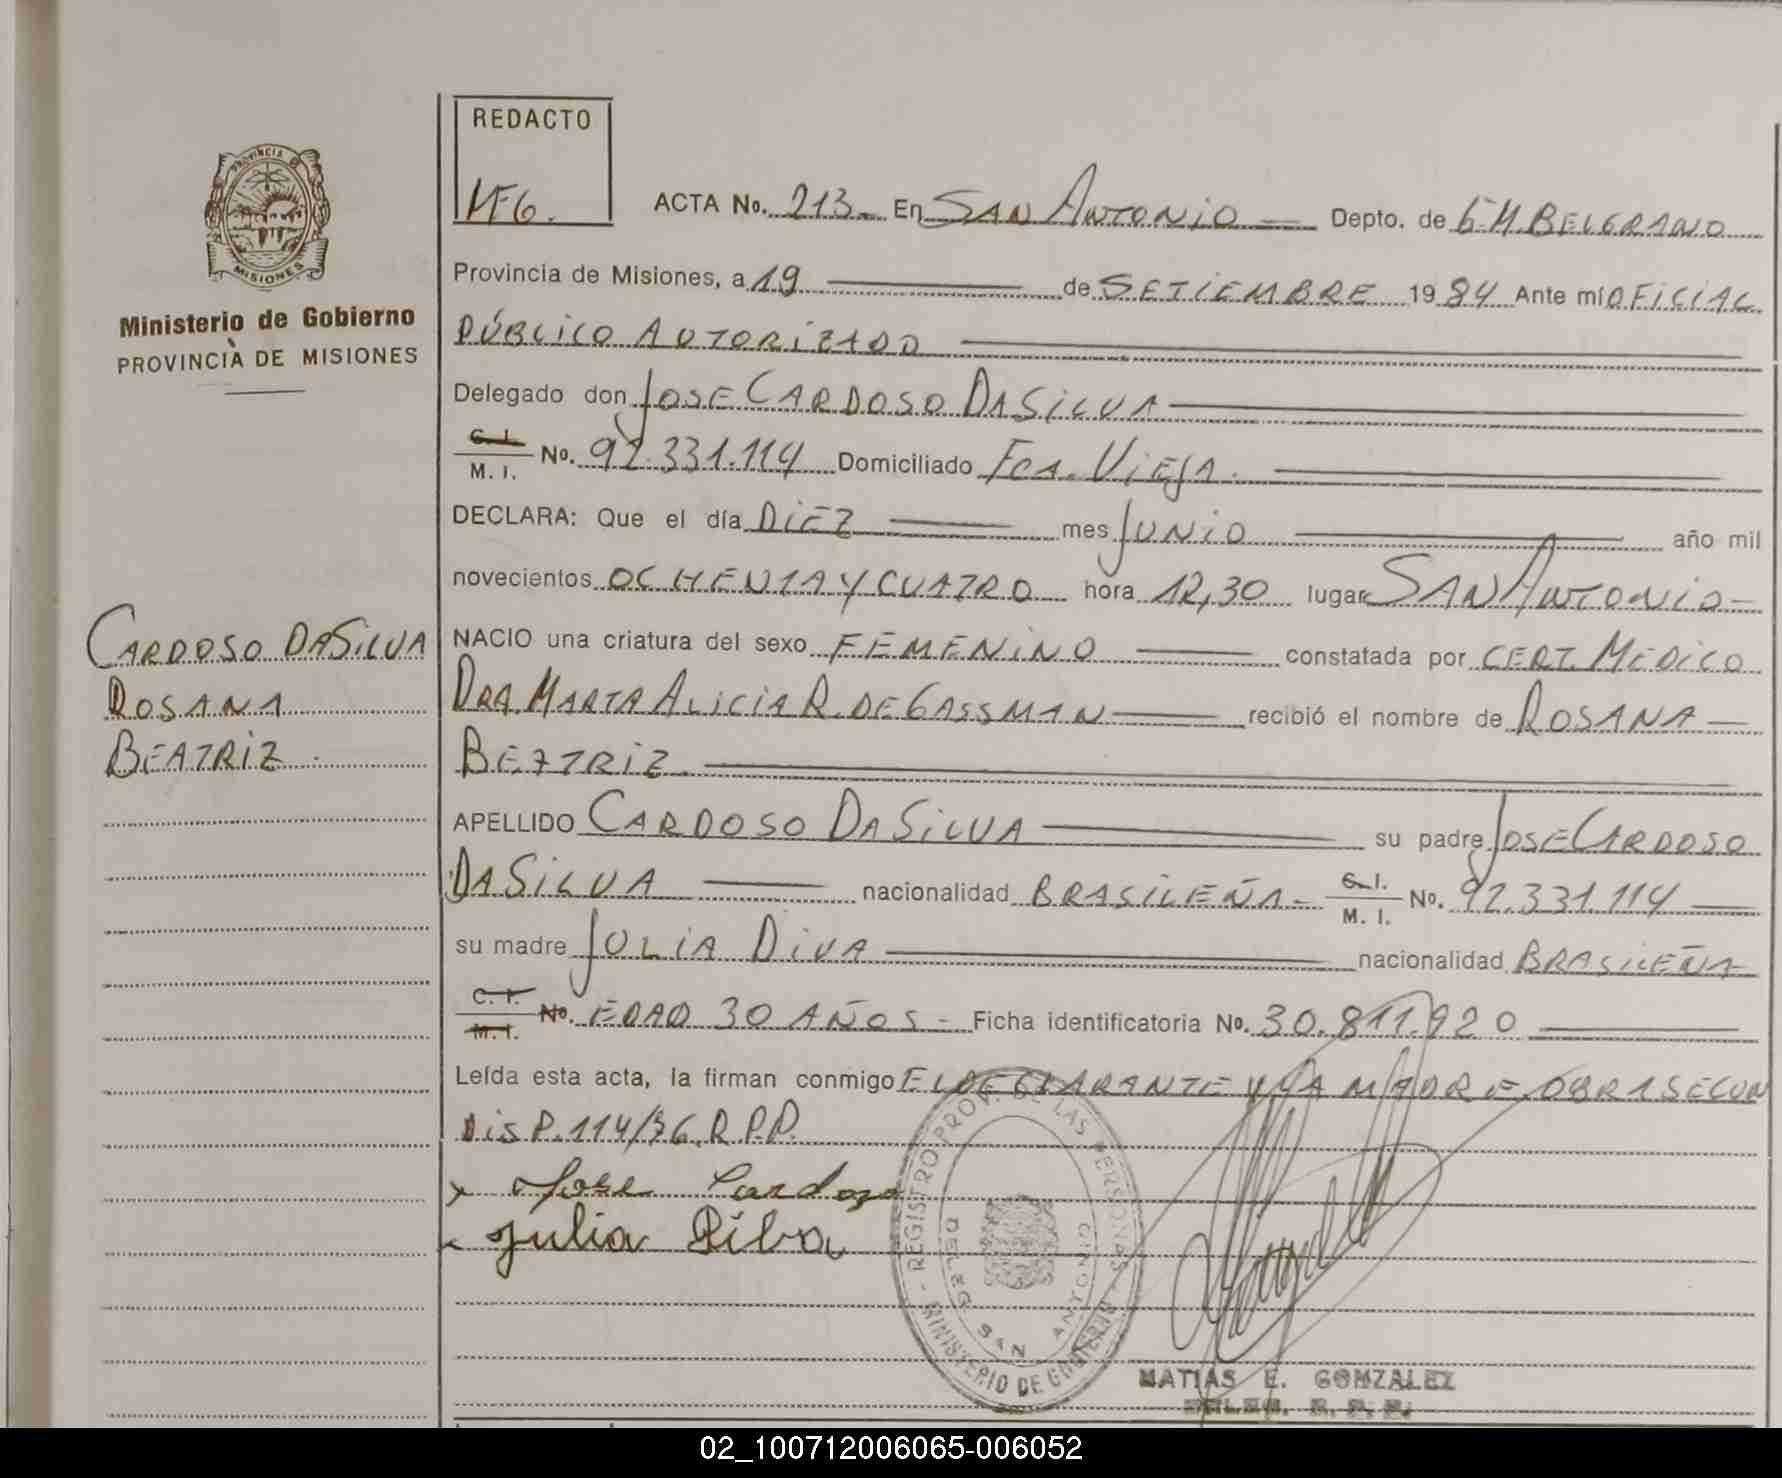 REDACTO
ACTA No. 213 En SAN ANTONIO Depto. de G.M. BELGRANO
PROVINCIA DE
MISIONES
Ministerio de Gobierno
PROVINCIA DE MISIONES
Provincia de Misiones, a 19 de SETIEMBRE 1984 Ante mí OFICIAL
PÚBLICO AUTORIZADO
Delegado don JOSE CARDOSO DASILVA
C. I. M. I. No. 92.331.114 Domiciliado FCA. VIEJA.
DECLARA: Que el día DIEZ mes JUNIO año mil
novecientos OCHENTA Y CUATRO hora 12,30 lugar SAN ANTONIO
CARDOSO DASILVA
ROSANA
BEATRIZ
NACIO una criatura del sexo FEMENINO constatada por CERT. MEDICO
DRA. MARTA ALICIA R. DE GASSMAN recibió el nombre de ROSANA
BEATRIZ
APELLIDO CARDOSO DASILVA su padre JOSE CARDOSO
DASILVA nacionalidad BRASILEÑA C. I. M. I. No. 92.331.114
su madre JULIA DIVA nacionalidad BRASILEÑA
C. I. M. I. No. EDAD 30 AÑOS - Ficha identificatoria No. 30.811.920
Leída esta acta, la firman conmigo EL DECLARANTE Y LA MADRE OBRA SEGUN
DISP. 114/76. R.P.P.
x Jose Cardozo
x Julia Diva
REGISTRO PROV. DE LAS PERSONAS
DELEG. SAN ANTONIO
MINISTERIO DE GOBIERNO
MATIAS E. GONZALEZ
DELEG. R. P. P.
02_100712006065-006052